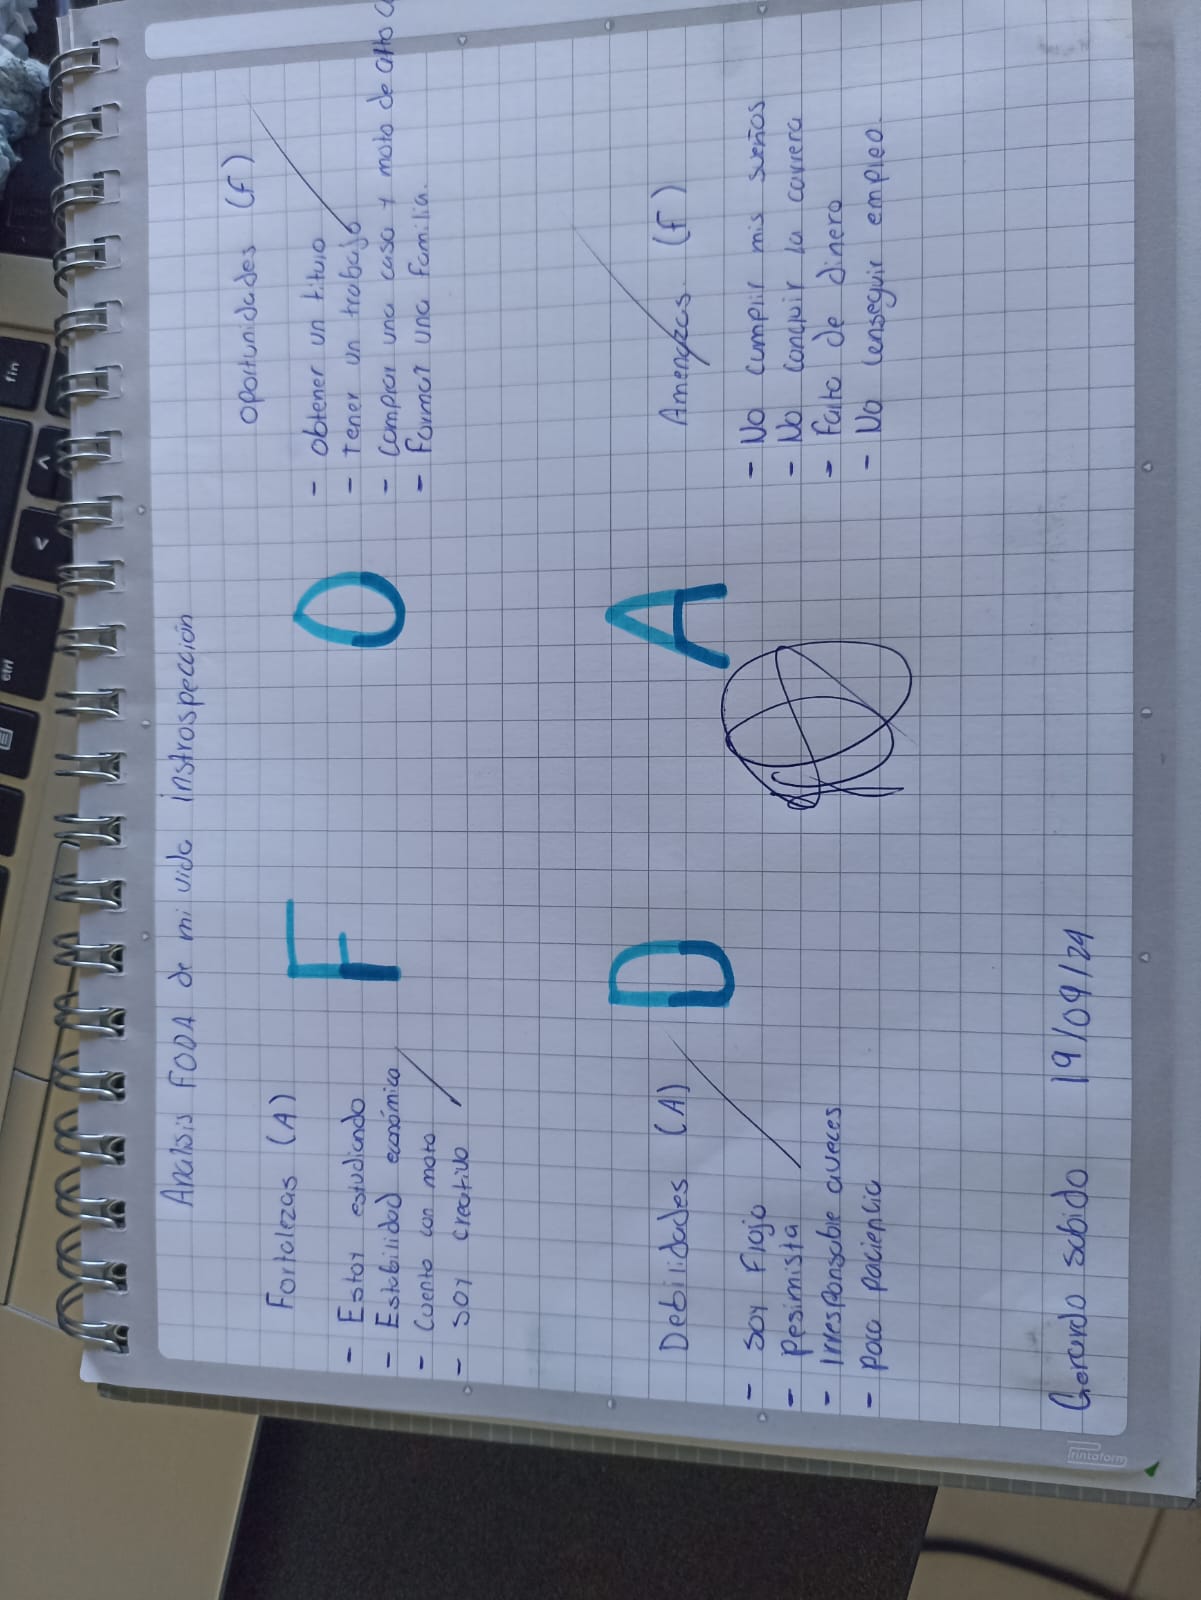 Analisis FODA de mi vida instrospección
Fortalezas (A)
- Estoy estudiando
- Estabilidad económica
- Cuento con moto
- Soy creativo
F
O
oportunidades (F)
- obtener un titulo
- Tener un trabajo
- Comprar una casa y moto de alto c
- Formar una familia.
Debilidades (A)
- Soy Flojo
- Pesimista
- Irresponsable aveces
- Poca paciencia
D
A
Amenazas (F)
- No cumplir mis sueños
- No concluir la carrera
- Falta de dinero
- No conseguir empleo.
Gerardo Sabido 19/09/24
Printaform
ctrl
fin